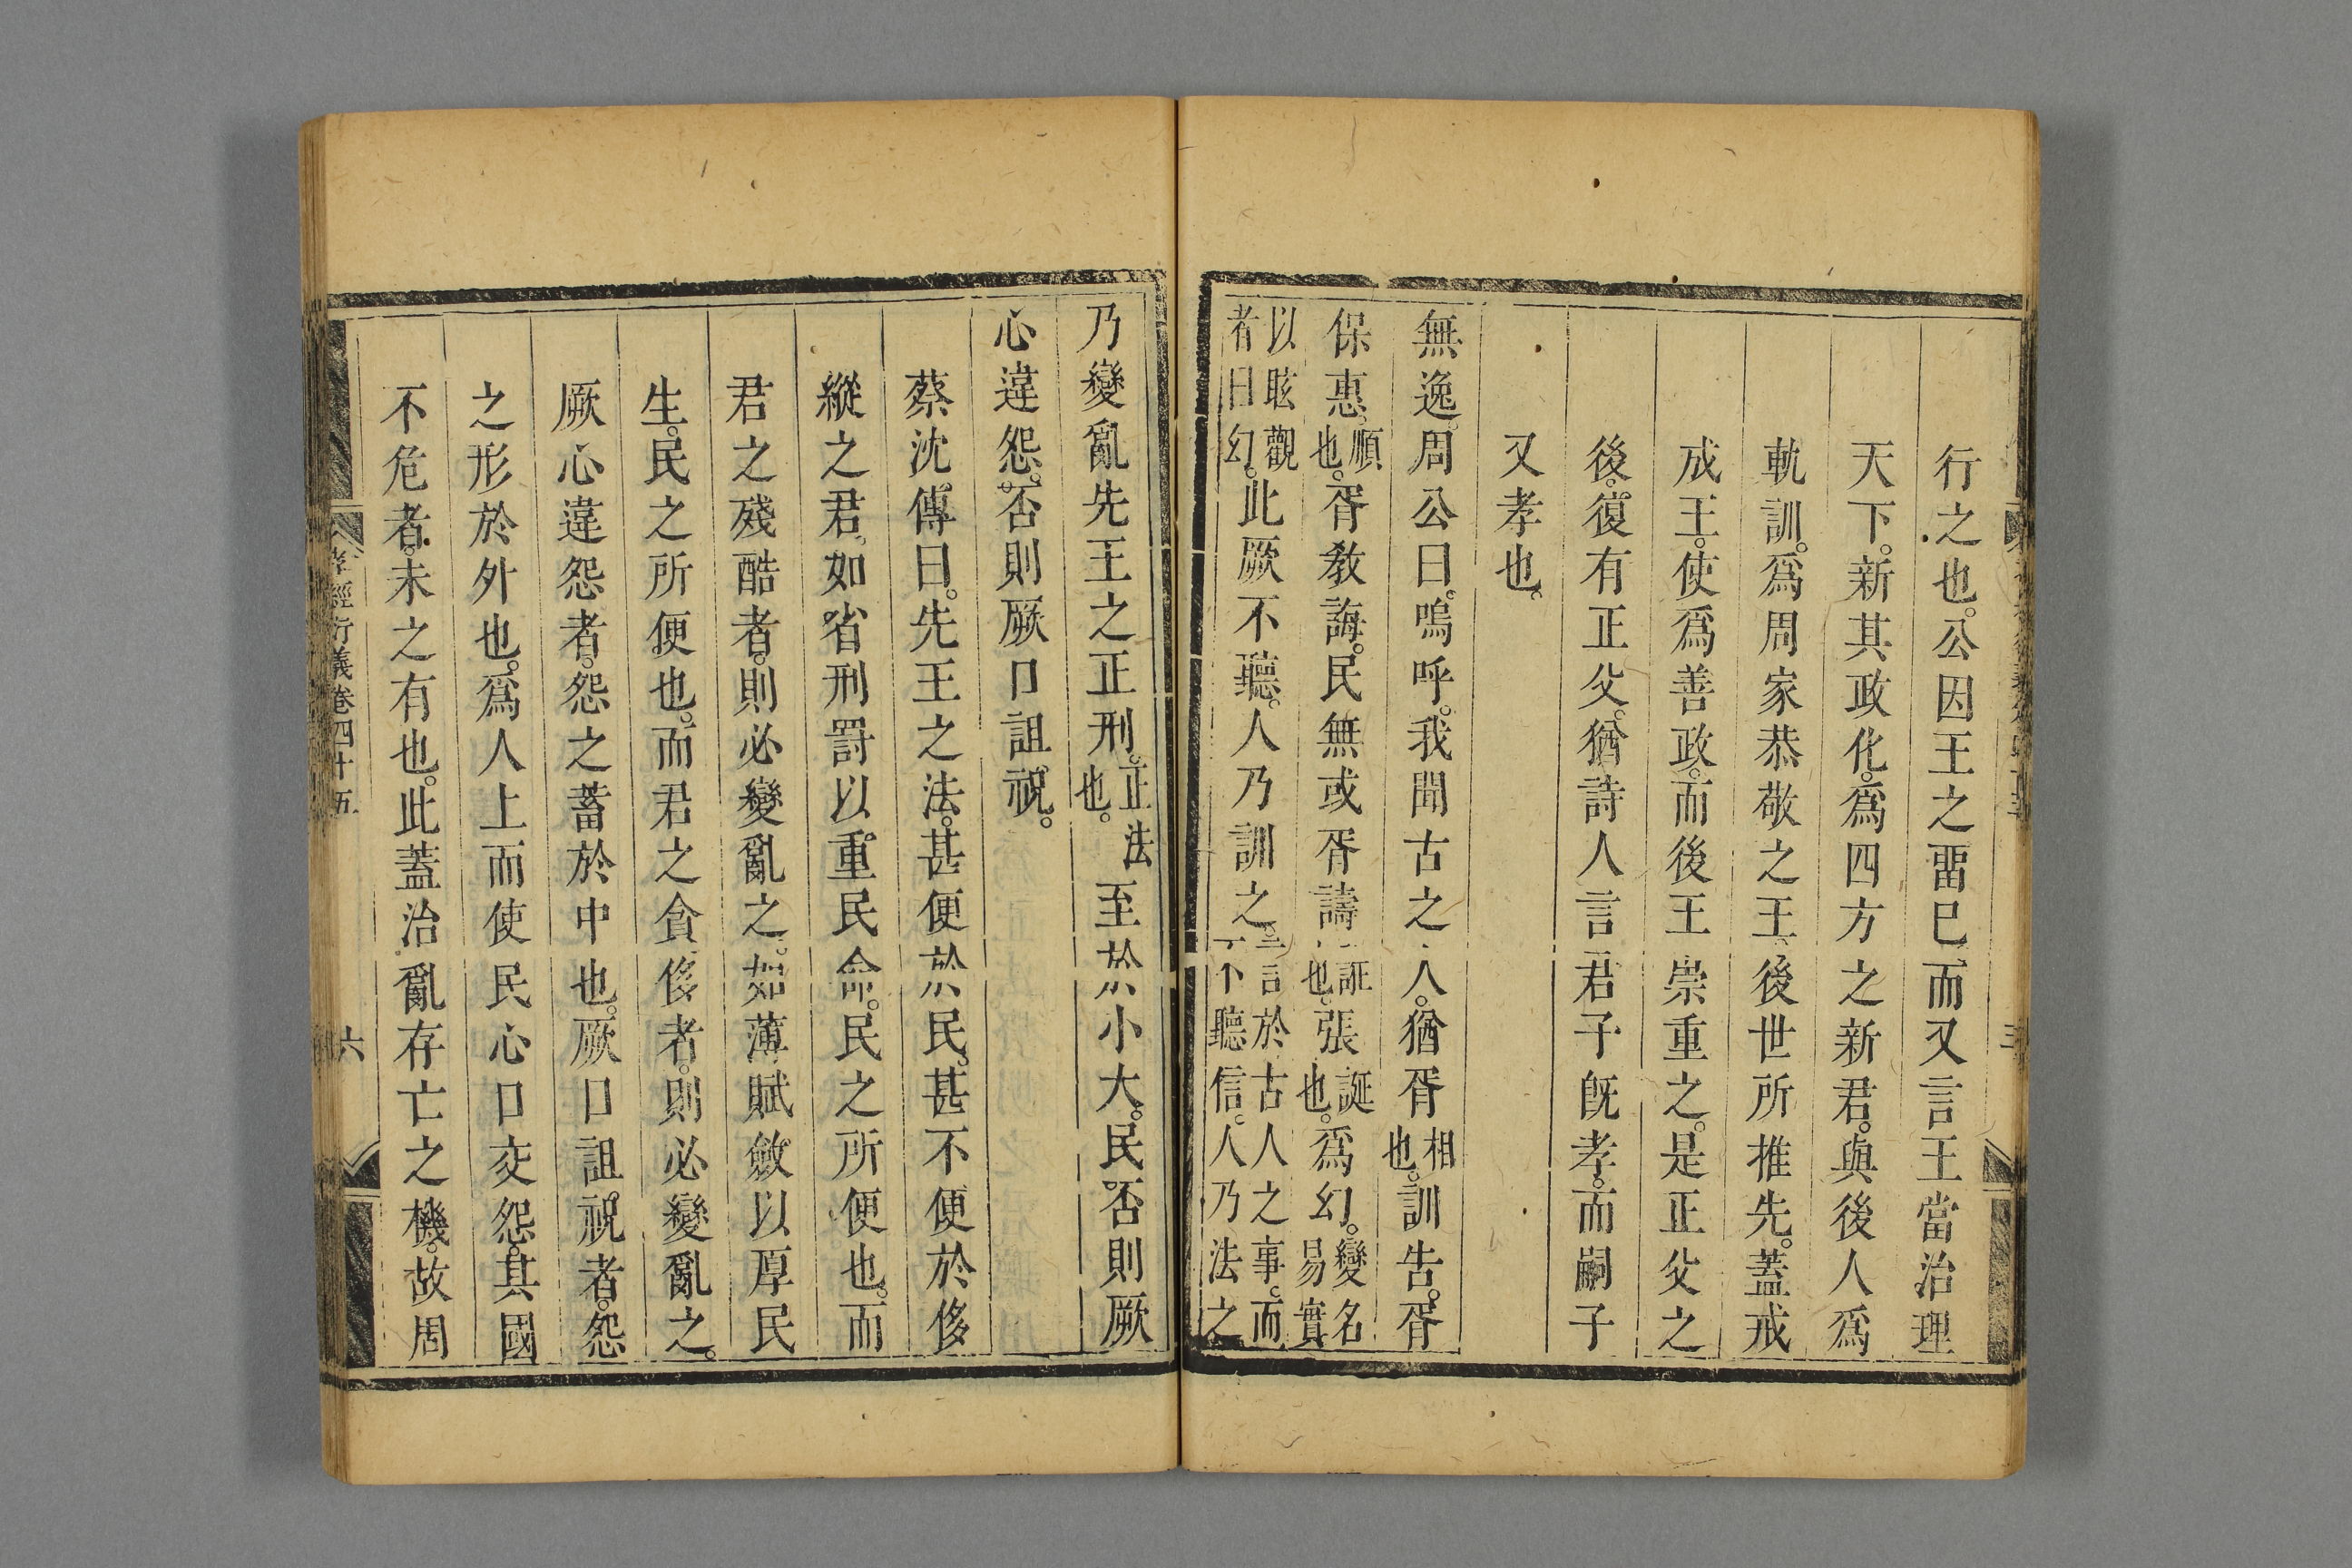 行之也。公因王之畱已。而又言王當治理
天下。新其政化。爲四方之新君。與後人爲
軌訓。爲周家恭敬之王。後世所推先。蓋戒
成王。使爲善政。而後王崇重之。是正父之
後。復有正父。猶詩人言君子旣孝。而嗣子
又孝也。
無逸。周公曰。嗚呼。我聞古之人。猶胥相也。訓告。胥
保惠。順也。胥教誨。民無或胥譸誑也。張誕也。爲幻。變名易實
以眩觀者曰幻。此厥不聽。人乃訓之。言於古人之事。而不聽信。人乃法之
乃變亂先王之正刑。正法也。至於小大。民否則厥
心違怨。否則厥口詛祝。
蔡沈傳曰。先王之法。甚便於民。甚不便於侈
縱之君。如省刑罰以重民命。民之所便也。而
君之殘酷者。則必變亂之。如薄賦斂以厚民
生。民之所便也。而君之貪侈者。則必變亂之。
厥心違怨者。怨之蓄於中也。厥口詛祝者。怨
之形於外也。爲人上而使民心口交怨。其國
不危者。未之有也。此蓋治亂存亡之機。故周
孝經衍義卷四十五 六